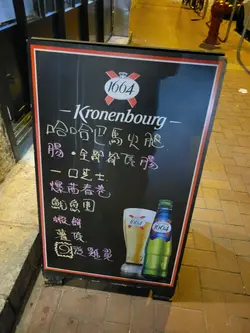 1664
Kronenbourg
哈哈巴馬火腿
腸．全部都係腸
一口芝士
爆茜春卷
魷魚圈
蝦餅
薯條
炸雞翼
1664
1664